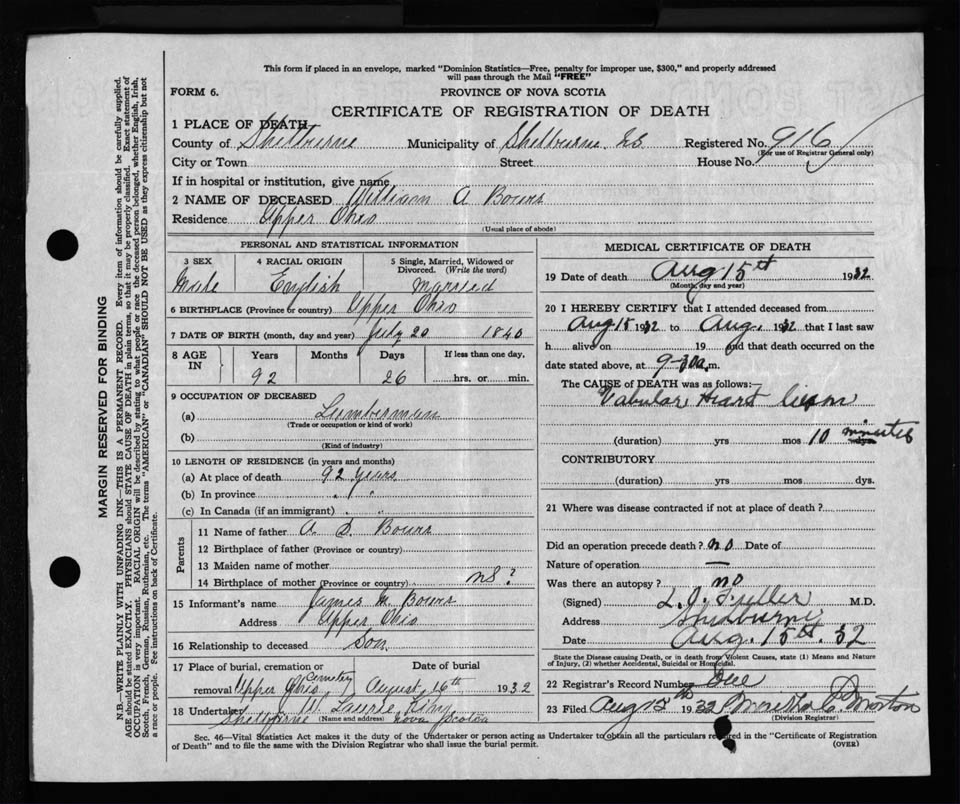 This form if placed in an envelope, marked "Dominion Statistics—Free, penalty for improper use, $300," and properly addressed
will pass through the Mail "FREE"
FORM 6.
PROVINCE OF NOVA SCOTIA
CERTIFICATE OF REGISTRATION OF DEATH
1 PLACE OF DEATH
County of Shelburne Municipality of Shelburne Registered No. 916
(For use of Registrar General only)
City or Town Street House No.
If in hospital or institution, give name
2 NAME OF DECEASED William A Bowrs
Residence Upper Ohio
(Usual place of abode)
PERSONAL AND STATISTICAL INFORMATION
3 SEX 4 RACIAL ORIGIN 5 Single, Married, Widowed or Divorced. (Write the word)
Male English Married
6 BIRTHPLACE (Province or country) Upper Ohio
7 DATE OF BIRTH (month, day and year) July 20 1840
8 AGE IN Years Months Days If less than one day,
92 26 hrs. or min.
9 OCCUPATION OF DECEASED
(a) Lumberman
(Trade or occupation or kind of work)
(b)
(Kind of industry)
10 LENGTH OF RESIDENCE (in years and months)
(a) At place of death 92 Years
(b) In province " "
(c) In Canada (if an immigrant) " "
Parents
11 Name of father A. S. Bowrs
12 Birthplace of father (Province or country)
13 Maiden name of mother
14 Birthplace of mother (Province or country) NS ?
15 Informant's name James M. Bowrs
Address Upper Ohio
16 Relationship to deceased Son
17 Place of burial, cremation or removal Upper Ohio Cemetery Date of burial August 16th 1932
18 Undertaker
Shelburne (Name and address) Nova Scotia
MEDICAL CERTIFICATE OF DEATH
19 Date of death Aug 15th 1932
(Month, day and year)
20 I HEREBY CERTIFY that I attended deceased from
Aug 15 1932 to Aug. 1932 that I last saw
h alive on 19 and that death occurred on the
date stated above, at 9-30 a. m.
The CAUSE of DEATH was as follows:—
Vabular Heart
(duration) yrs mos 10 minutes dys.
CONTRIBUTORY
(duration) yrs mos. dys.
21 Where was disease contracted if not at place of death?
Did an operation precede death? no Date of
Nature of operation —
Was there an autopsy? no
(Signed) L. J. Fuller M.D.
Address Shelburne
Date Aug. 15th. 32
State the Disease causing Death, or in death from Violent Causes, state (1) Means and Nature
of Injury, (2) whether Accidental, Suicidal or Homicidal.
22 Registrar's Record Number
23 Filed Aug 15 1932 Morton
(Division Registrar)
Sec. 46—Vital Statistics Act makes it the duty of the Undertaker or person acting as Undertaker to obtain all the particulars required in the "Certificate of Registration
of Death" and to file the same with the Division Registrar who shall issue the burial permit.
(OVER)
MARGIN RESERVED FOR BINDING
N.B.—WRITE PLAINLY WITH UNFADING INK—THIS IS A PERMANENT RECORD. Every item of information should be carefully supplied.
AGE should be stated EXACTLY. PHYSICIANS should STATE CAUSE OF DEATH in plain terms, so that it may be properly classified. Exact statement of
OCCUPATION is very important. RACIAL ORIGIN will be described by stating to what people or race the deceased person belonged, whether English, Irish,
Scotch, French, German, Russian, Ruthenian, etc. The terms "AMERICAN" or "CANADIAN" SHOULD NOT BE USED as they express citizenship but not
a race or people. See instructions on back of Certificate.